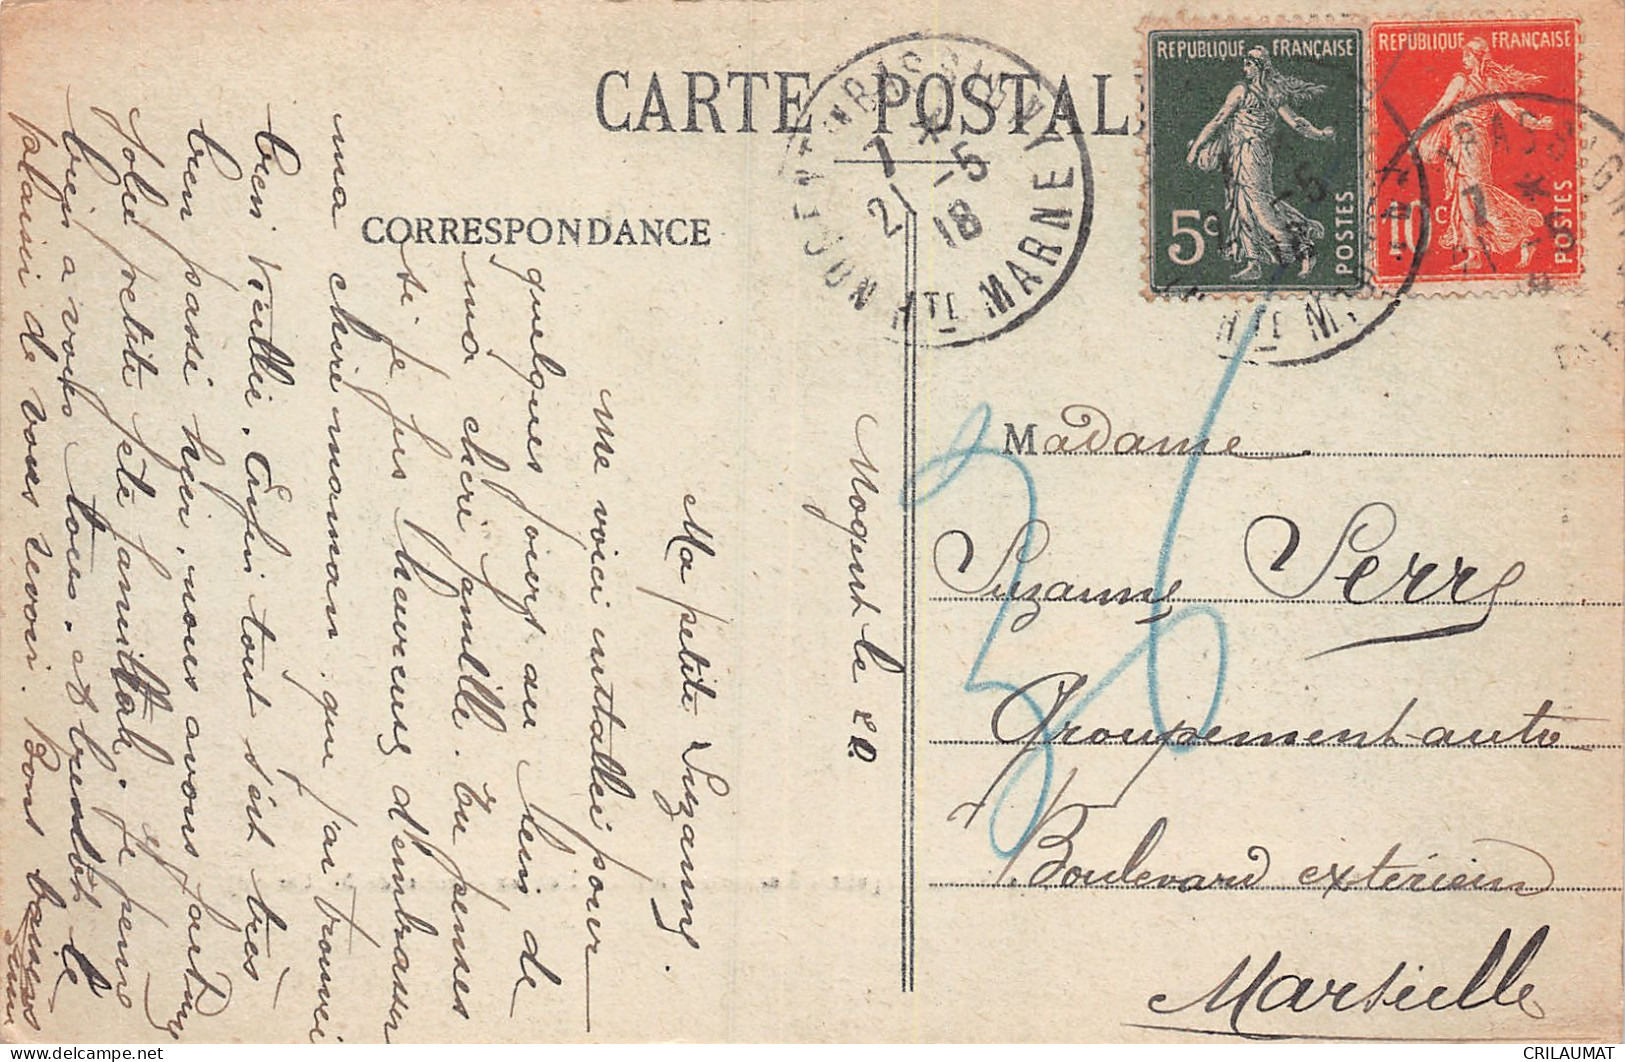 CARTE POSTALE
CORRESPONDANCE
REPUBLIQUE FRANÇAISE
5c
POSTES
REPUBLIQUE FRANÇAISE
10c
POSTES
7 -5
18
HTE MARNE
36
Nogent le 20
Ma petite Suzanne.
Me voici installée pour
quelques jours au sein de
ma chère famille. Tu penses
si je fus heureuse d'embrasser
ma chère maman que j'ai trouvée
bien vieillie. Enfin tout s'est très
bien passé hier, nous avons fait une
jolie petite fête familiale. je pense
bien à vous tous. et bientôt le
plaisir de vous revoir. Bons baisers
Madame
Suzanne Serre
Groupement auto
Boulevard extérieur
Marseille
CRILAUMAT